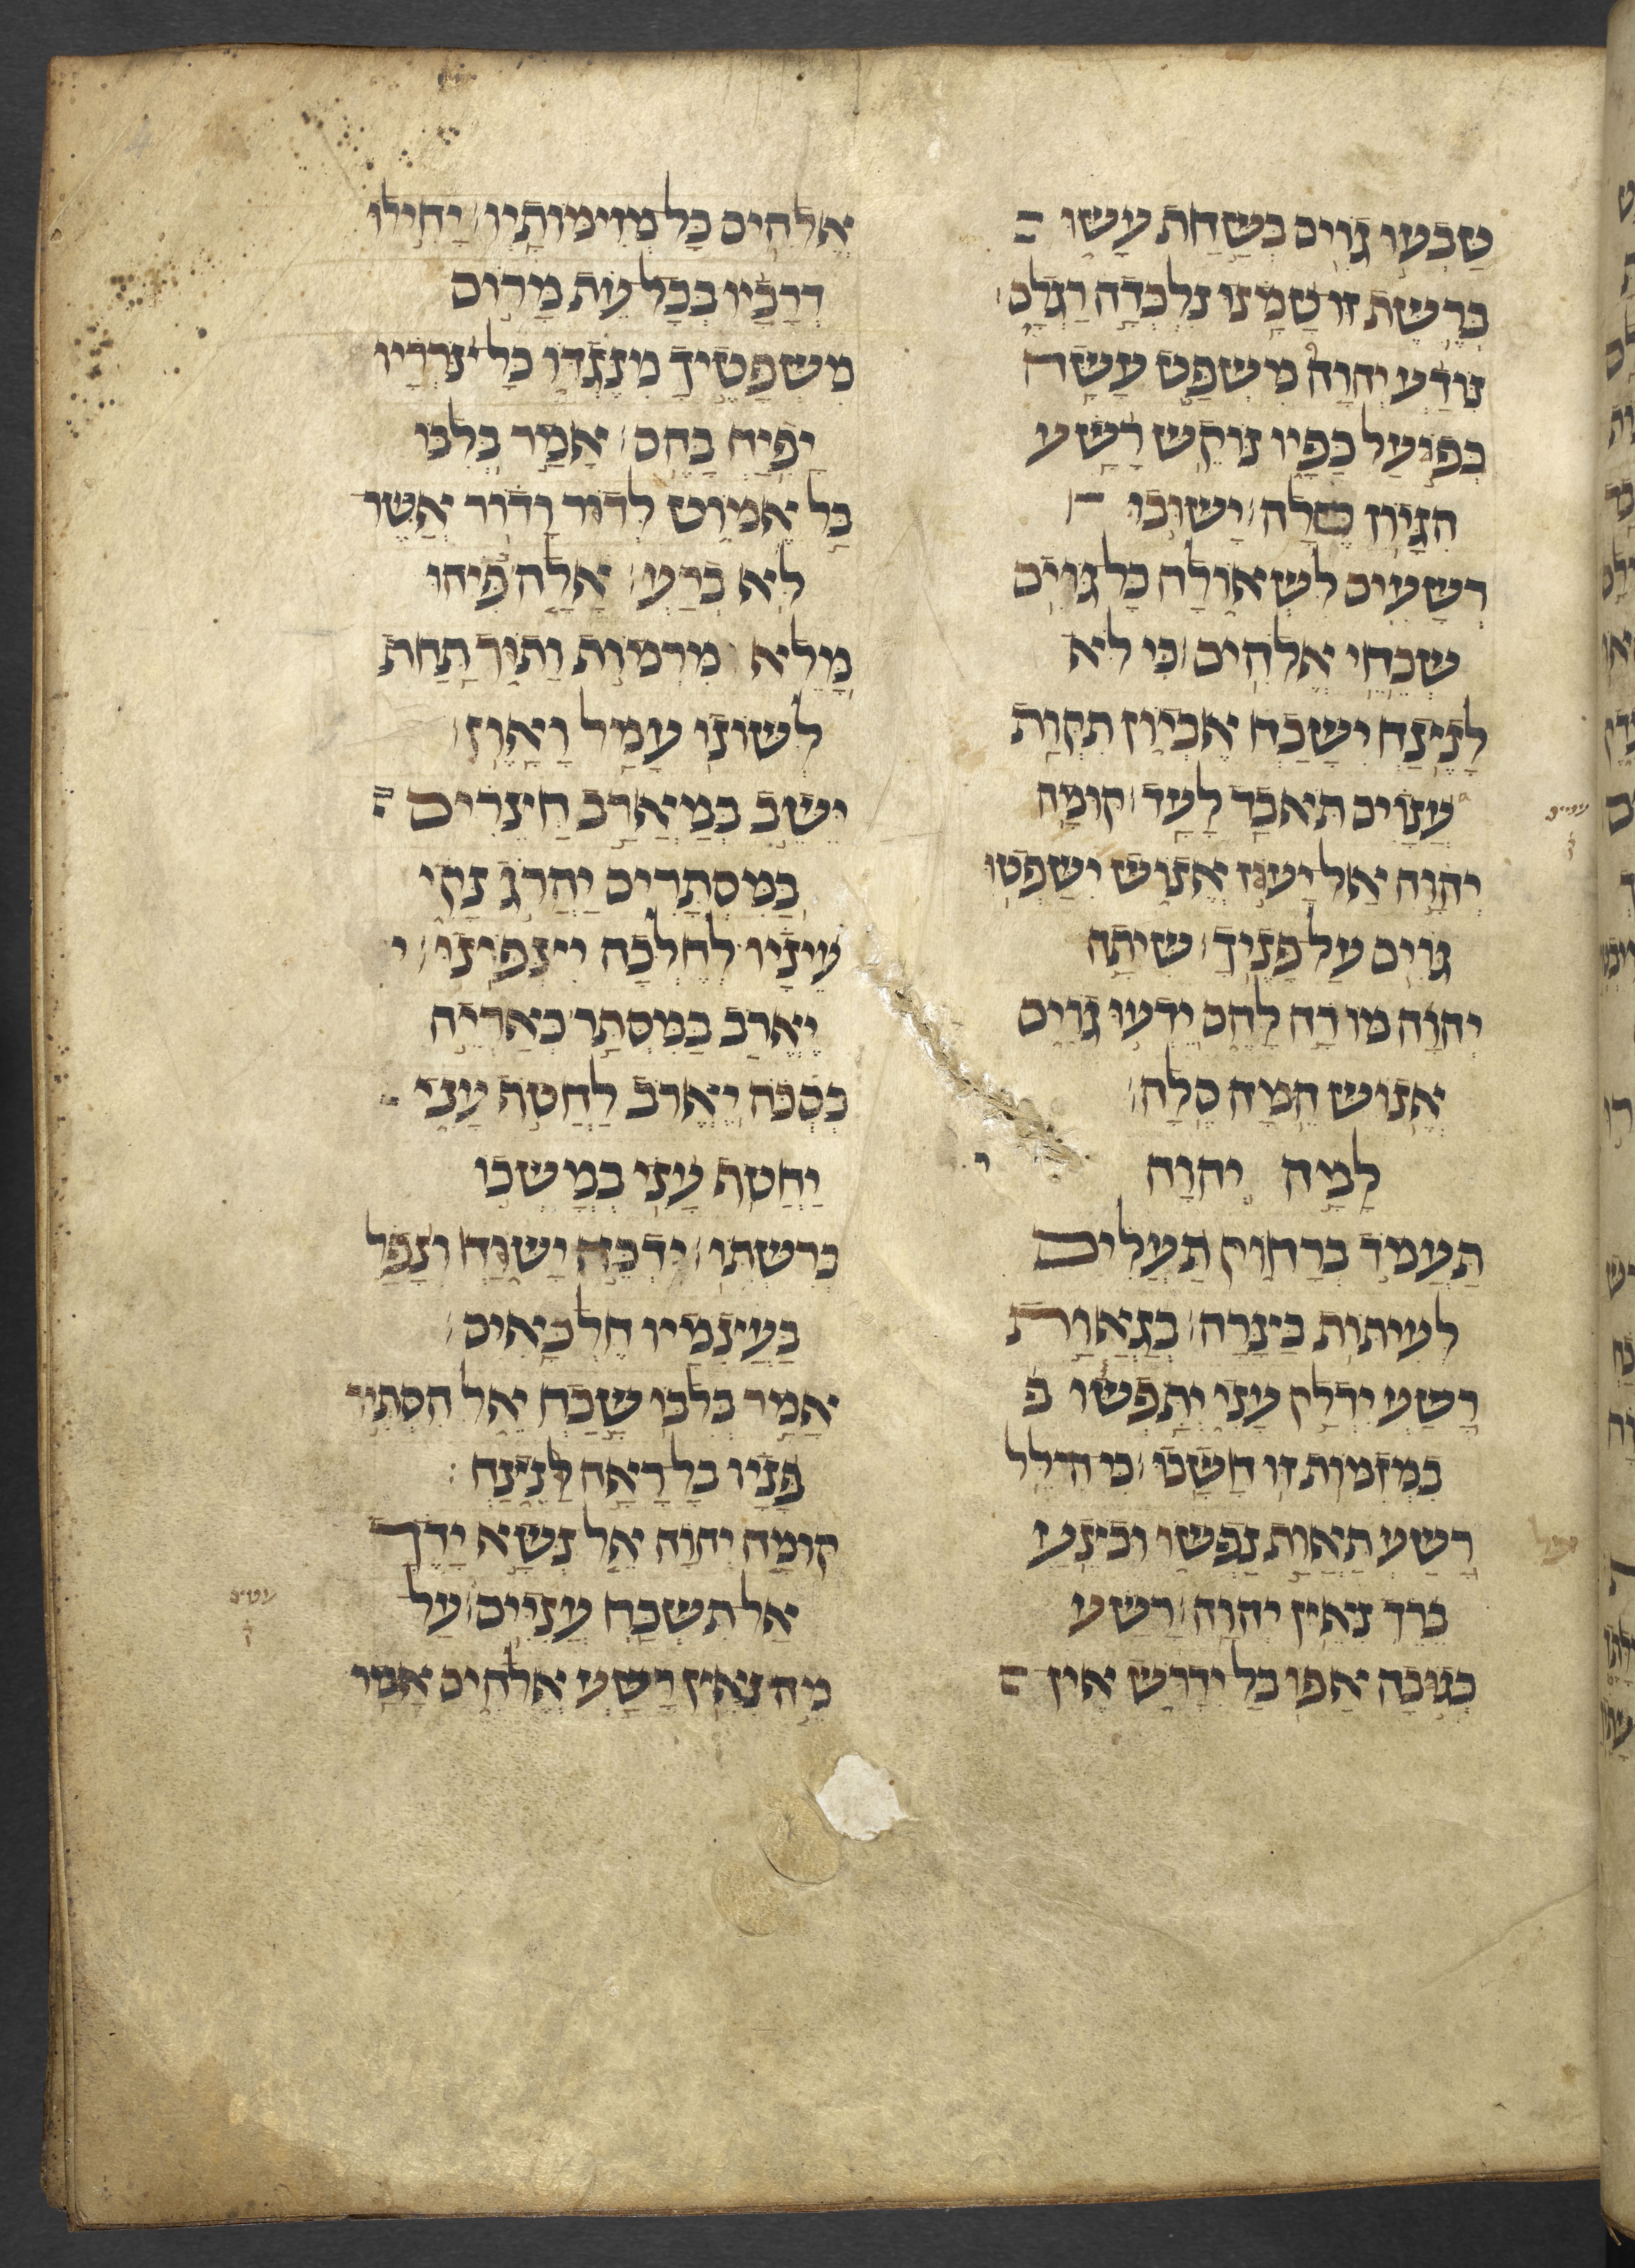 טָבְעוּ גוֹיִם בְּשַׁחַת עָשׂוּ
בְּרֶשֶׁת זוּ טָמָנוּ נִלְכְּדָה רַגְלָם
נוֹדַע יְהוָה מִשְׁפָּט עָשָׂה
בְּפֹעַל כַּפָּיו נוֹקֵשׁ רָשָׁע
הִגָּיוֹן סֶלָה יָשׁוּבוּ
רְשָׁעִים לִשְׁאוֹלָה כָּל גּוֹיִם
שְׁכֵחֵי אֱלֹהִים כִּי לֹא
לָנֶצַח יִשָּׁכַח אֶבְיוֹן תִּקְוַת
עֲנָוִים תֹּאבַד לָעַד קוּמָה
יְהוָה אַל יָעֹז אֱנוֹשׁ יִשָּׁפְטוּ
גוֹיִם עַל פָּנֶיךָ שִׁיתָה
יְהוָה מוֹרָה לָהֶם יֵדְעוּ גוֹיִם
אֱנוֹשׁ הֵמָּה סֶּלָה
לָמָה יְהוָה
תַּעֲמֹד בְּרָחוֹק תַּעְלִים
לְעִתּוֹת בַּצָּרָה בְּגַאֲוַת
רָשָׁע יִדְלַק עָנִי יִתָּפְשׂוּ ב
בִּמְזִמּוֹת זוּ חָשָׁבוּ כִּי הִלֵּל
רָשָׁע תַּאֲוַת נַפְשׁוֹ וּבֹצֵעַ
בֵּרֵךְ נִאֵץ יְהוָה רָשָׁע
כְּגֹבַהּ אַפּוֹ בַּל יִדְרֹשׁ אֵין
אֱלֹהִים כָּל מְזִימּוֹתָיו יָחִילוּ
דְרָכָיו בְּכָל עֵת מָרוֹם
מִשְׁפָּטֶיךָ מִנֶּגְדּוֹ כָּל צֹרְרָיו
יָפִיחַ בָּהֶם אָמַר בְּלִבּוֹ
בַּל אֶמּוֹט לְדוֹר וָדוֹר אֲשֶׁר
לֹא בְרָע אָלָה פִּיהוּ
מָלֵא מִרְמוֹת וָתוֹךְ תַּחַת
לְשׁוֹנוֹ עָמָל וָאָוֶן
יֵשֵׁב בְּמַאְרַב חֲצֵרִים
בַּמִּסְתָּרִים יַהֲרֹג נָקִי
עֵינָיו לְחֵלְכָה יִצְפֹּנוּ י
יֶאֱרֹב בַּמִּסְתָּר כְּאַרְיֵה
בְסֻכֹּה יֶאֱרֹב לַחֲטוֹף עָנִי
יַחְטֹף עָנִי בְּמָשְׁכוֹ
בְרִשְׁתּוֹ יִדְכֶּה יָשֹׁוחַ וְנָפַל
בַּעֲצוּמָיו חֶלְכָּאִים
אָמַר בְּלִבּוֹ שָׁכַח אֵל הִסְתִּיר
פָּנָיו בַּל רָאָה לָנֶצַח
קוּמָה יְהוָה אֵל נְשָׂא יָדֶךָ
אַל תִּשְׁכַּח עֲנִיִּים עַל
מֶה נִאֵץ רָשָׁע אֱלֹהִים אָמַר